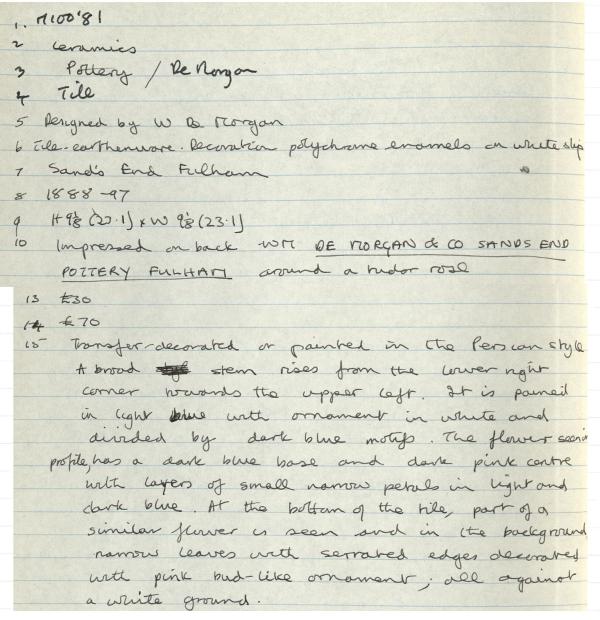 1. M100'81
2 Ceramics
3 Pottery / De Morgan
4 Tile
5 Designed by W De Morgan
6 Tile-earthenware. Decoration polychrome enamels on white slip
7 Sand's End Fulham
8 1888-97
9 H 9⅛ (23.1) x W 9⅛ (23.1)
10 Impressed on back WM DE MORGAN & CO SANDS END
POTTERY FULHAM around a tudor rose
13 £30
14 £70
15 Transfer-decorated or painted in the Persian style
A broad stem rises from the lower right
corner towards the upper left. It is painted
in light blue with ornament in white and
divided by dark blue motifs. The flower seen in
profile, has a dark blue base and dark pink centre
with layers of small narrow petals in light and
dark blue. At the bottom of the tile, part of a
similar flower is seen and in the background
narrow leaves with serrated edges decorated
with pink bud-like ornament; all against
a white ground.